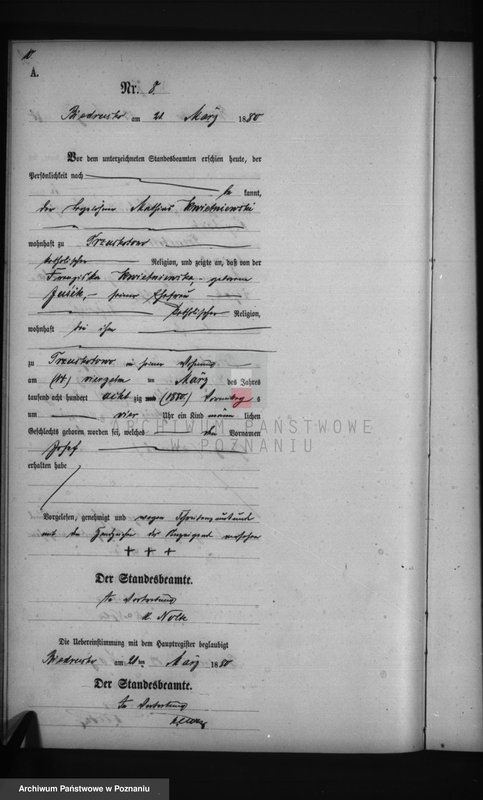 10
A.
Nr. 8
Biedrusko am 21 März 1880
Vor dem unterzeichneten Standesbeamten erschien heute, der
Persönlichkeit nach
kannt,
der Mathias Kwietniewski
wohnhaft zu
katholischer Religion, und zeigte an, daß von der
Franziska Kwietniewska, geborene
seiner Ehefrau
katholischer Religion,
wohnhaft bei ihm
zu in seiner Wohnung
am (14) vierzehn ten März des Jahres
tausend acht hundert acht zig (1880) Vormittag s
um vier Uhr ein Kind männ lichen
Geschlechts geboren worden sei, welches den Vornamen
Josef
erhalten habe
Vorgelesen, genehmigt und wegen
mit der Handzeichen des versehen
+ + +
Der Standesbeamte.
In Vertretung
Nolte
Die Uebereinstimmung mit dem Hauptregister beglaubigt
Biedrusko am 21 ten März 1880
Der Standesbeamte.
In Vertretung
ARCHIWUM PAŃSTWOWE
W POZNANIU
Archiwum Państwowe w Poznaniu